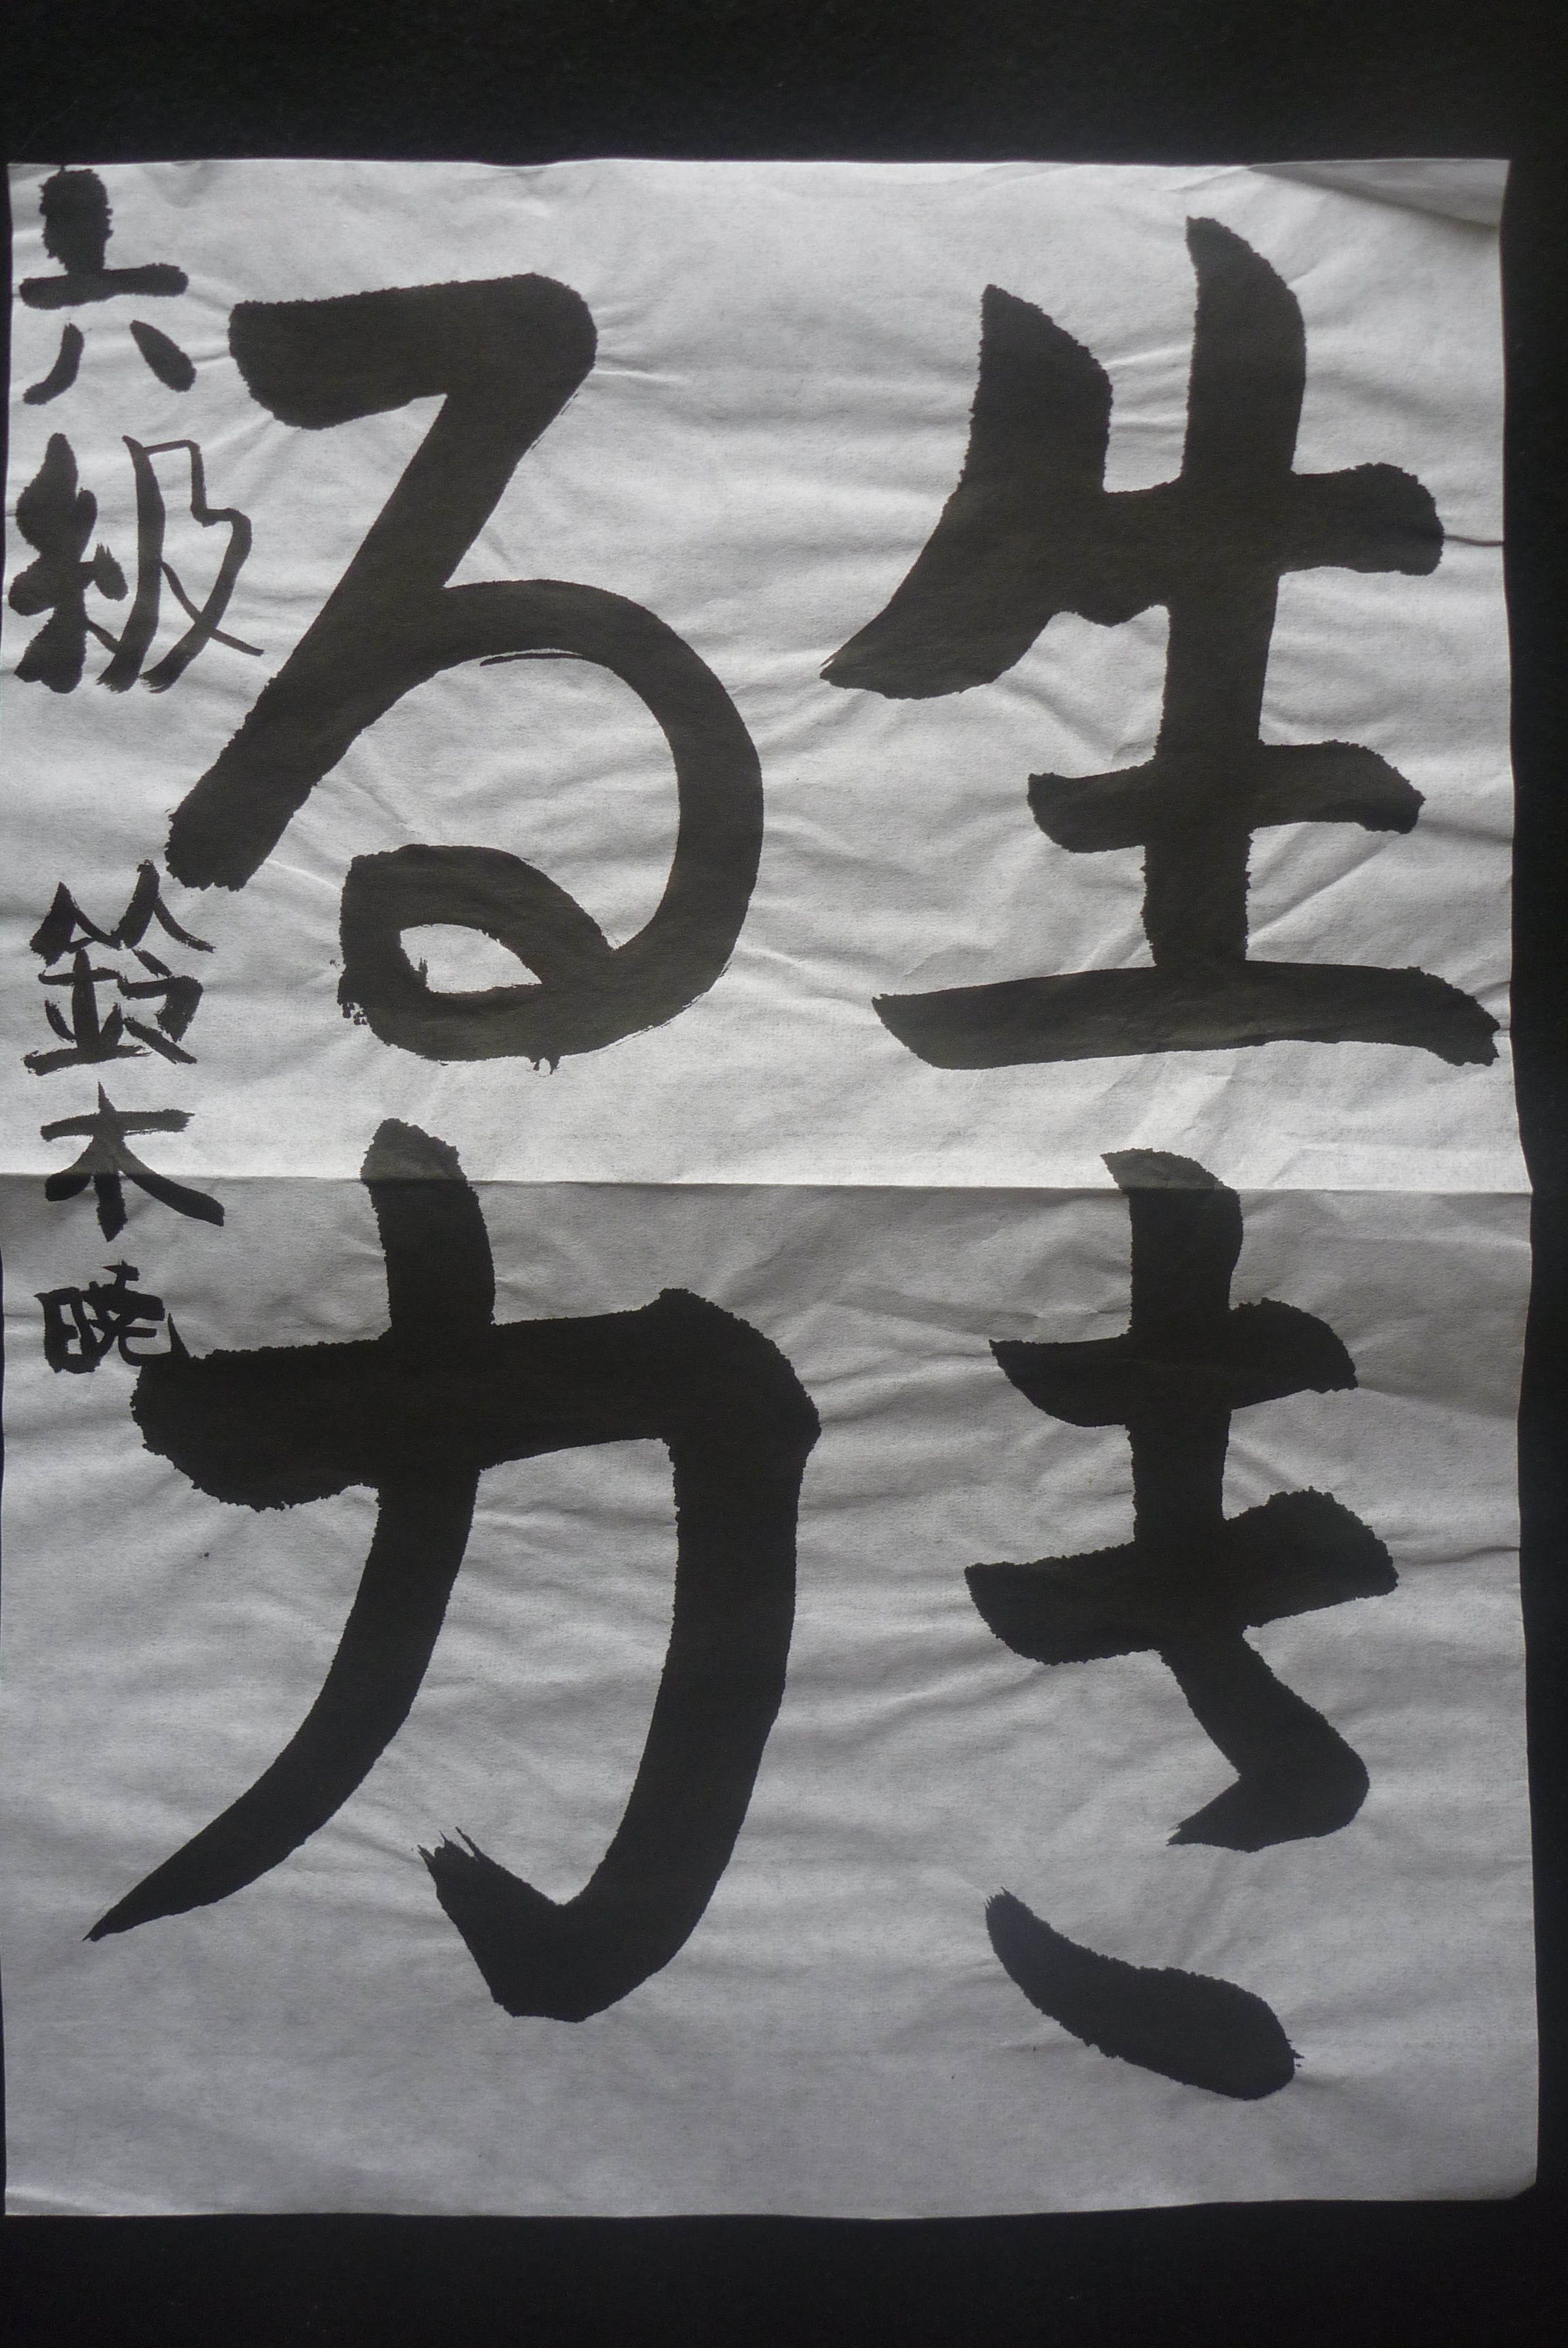 生き
る力
六級 鈴木暁